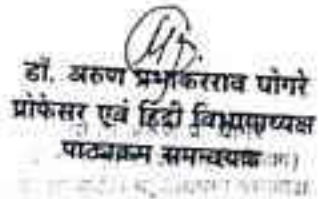 डॉ. अरुण प्रभाकरराव पोंगरे
प्रोफेसर एवं हिंदी विभागाध्यक्ष
पाठ्यक्रम समन्वयक